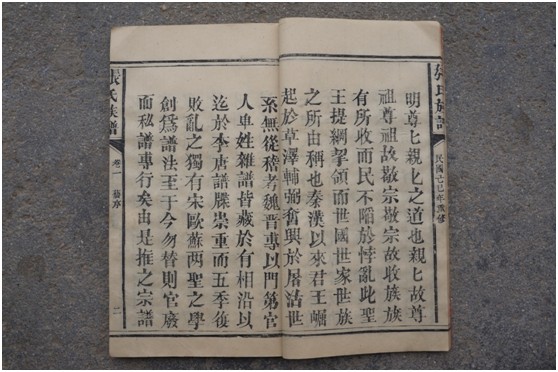 張氏族譜
民國己巳年
明尊匕親匕之道也親匕故尊
祖尊祖故敬宗敬宗故收族族
有所收而民不陷於悖亂此聖
王提綱挈領而世國世家世族
之所由稱也秦漢以來君王崛
起於草澤輔弼奮興於屠沽世
系無從稽考魏晉專以門第官
人卑姓雜譜皆藏於有相沿以
迄於李唐譜牒崇重而五季後
敗亂之獨有宋歐蘇兩聖之學
創爲譜法至于今勿替則官廢
而私譜專行矣由是推之宗譜
張氏族譜
卷一
序
二